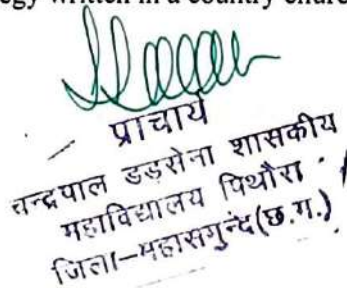 egy written in a country churc
प्राचार्य
चन्द्रपाल डड़सेना शासकीय
महाविद्यालय पिथौरा
जिला-महासमुन्द(छ.ग.)